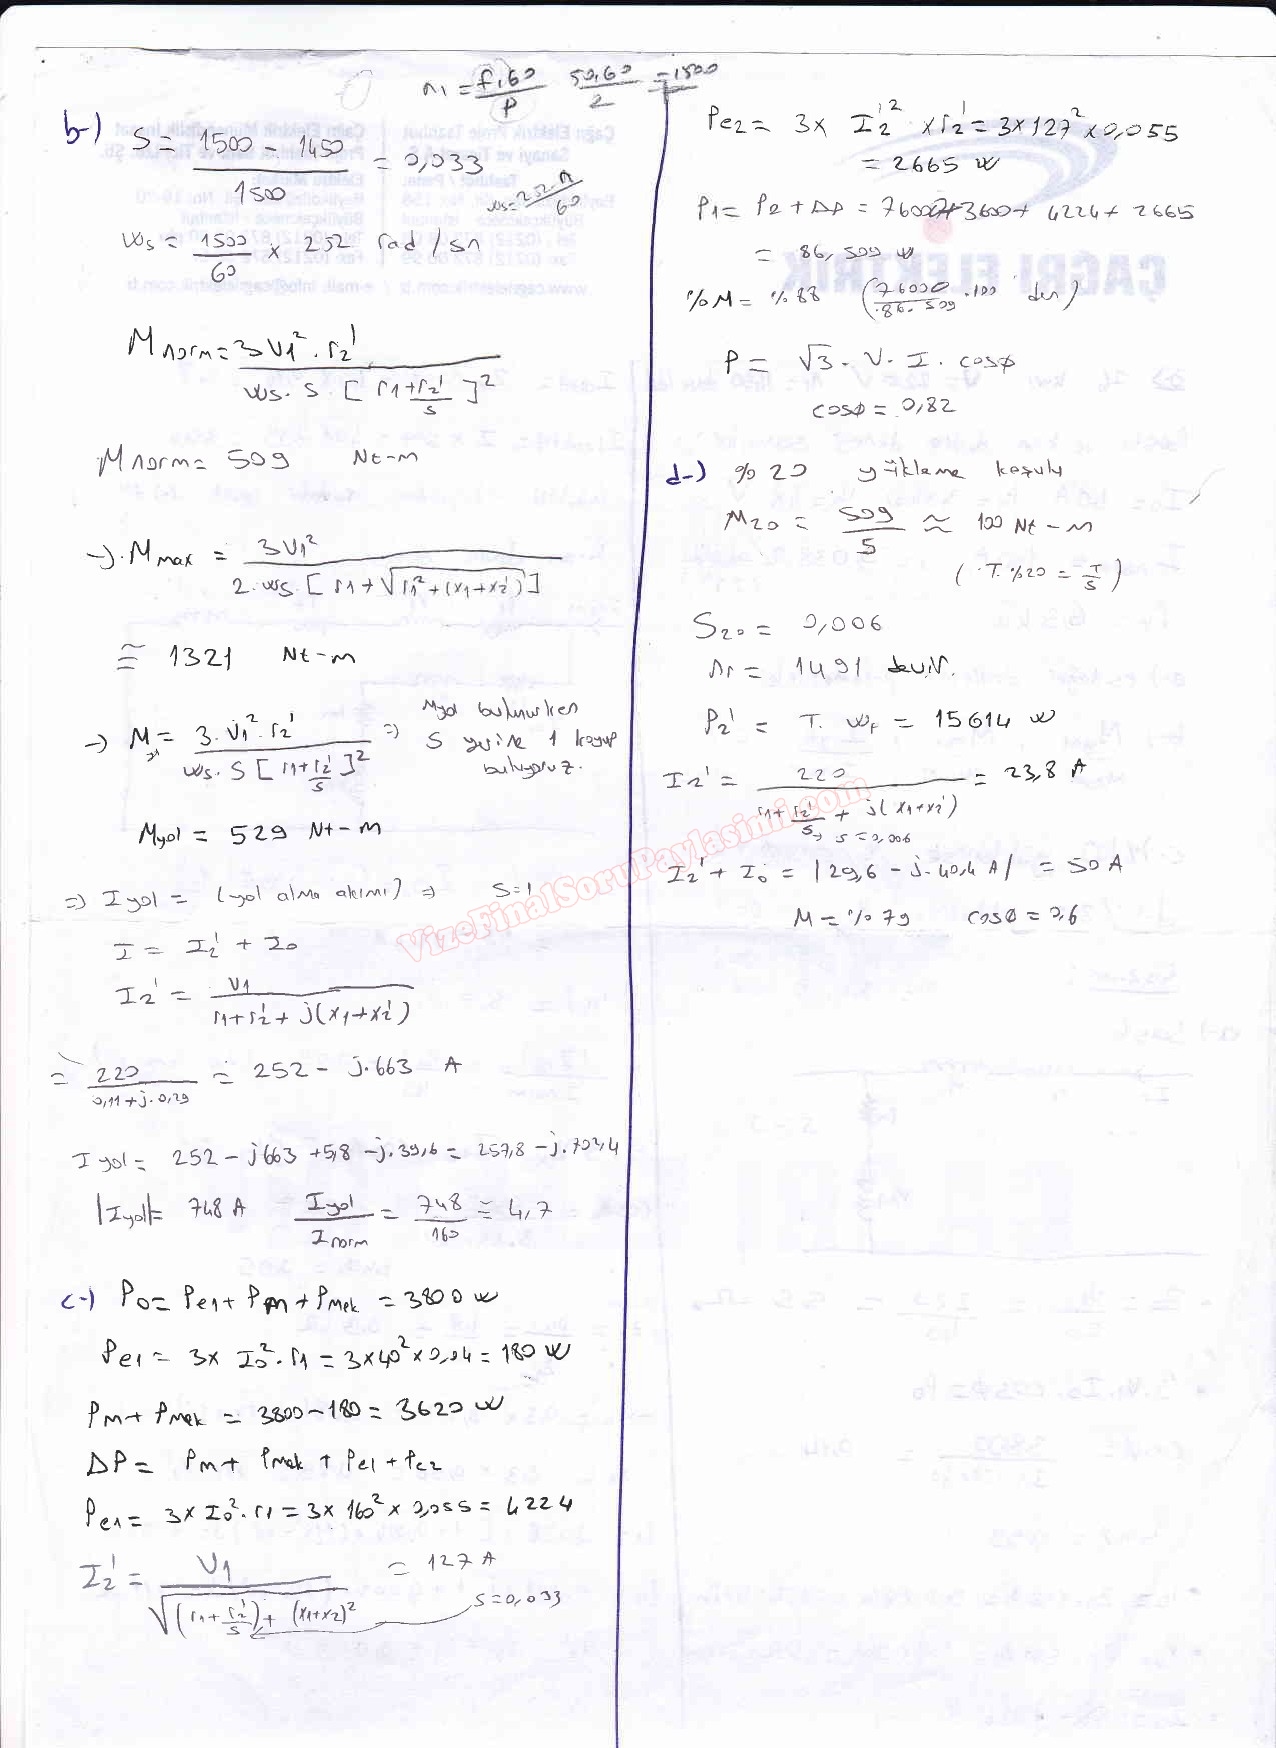 n₁ = f.60 / P   50.60 / 2 = 1500
b-) S = 1500 - 1450 / 1500 = 0,033
ws = 2.52.n / 60
ws = 1500 / 60 x 252 rad/sn
Mnorm = 3V1² . r2' / ws . s . [ r1 + r2'/s ]²
Mnorm = 509 Nt-m
-> . Mmax = 3V1² / 2 . ws . [ r1 + √r1² + (x1+x2') ]
≅ 1321 Nt-m
-> M = 3 . V1² . r2' / ws . S [ r1 + r2'/s ]² => Myol bulunurken
S yerine 1 koyup
buluyoruz.
Myol = 529 Nt-m
=> Iyol = (yol alma akımı) => S=1
I = I2' + I0
I2' = V1 / r1 + r2' + j(x1+x2')
= 220 / 0,11 + j.0,29 = 252 - j.663 A
Iyol = 252 - j663 + 5,8 - j.39,6 = 257,8 - j.702,4
|Iyol| = 748 A   Iyol / Inorm = 748 / 160 = 4,7
c-) P0 = Pe1 + Pm + Pmek = 3800 W
Pe1 = 3x I0² . r1 = 3x40² x 0,04 = 180 W
Pm + Pmek = 3800 - 180 = 3620 W
ΔP = Pm + Pmek + Pe1 + Pe2
Pe1 = 3 x I0² . r1 = 3 x 160² x 0,055 = 4224
I2' = V1 / √(r1 + r2'/s) + (x1+x2)² = 127 A
S=0,033
Pe2 = 3x I2'² x r2' = 3 x 127² x 0,055
= 2665 W
P1 = P2 + ΔP = 76000 + 3600 + 4224 + 2665
= 86,509 W
%M = %88 ( 76000 / 86.509 . 100 den )
P = √3 . V . I . cosφ
cosφ = 0,82
d-) %20 yükleme koşulu
M20 = 509 / 5 ≈ 100 Nt-m
( . T.%20 = T/5 )
S20 = 0,006
nr = 1491 dev/d.
P2' = T. wr = 15614 W
I2' = 220 / r1 + r2'/s + j(x1+x2') = 23,8 A
s=0,006
I2' + I0 = |29,6 - j.40,4 A| = 50 A
M = %79   cosφ = 0,6
ÇAĞRI ELEKTRİK
VizeFinalSoruPaylasimi.com